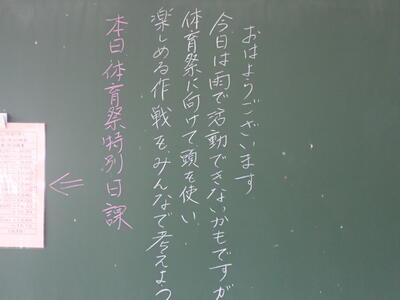 おはようございます
今日は雨で活動できないかもですが
体育祭に向けて頭を使い
楽しめる作戦をみんなで考えよう
本日体育祭特別日課